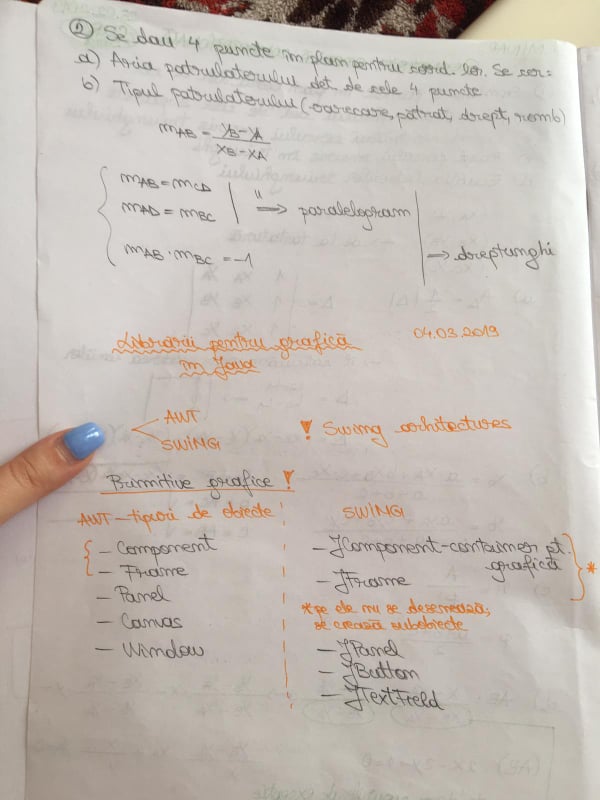 ② Se dau 4 puncte în plan pentru coord. lor. Se cer:
a) Aria patrulaterului det de cele 4 puncte
b) Tipul patrulaterului (oarecare, pătrat, drept, romb)
mAB = yB - yA / xB - xA
mAB = mCD
mAD = mBC | "=> paralelogram
mAB · mBC = -1
→ dreptunghi
Librării pentru grafică 04.03.2019
în Java
AWT
SWING
! Swing architectures
Primitive grafice !
AWT - tipuri de obiecte
- Component
- Frame
- Panel
- Canvas
- Window
SWING
- JComponent - container pt.
grafică
- JFrame *
* pe ele nu se desenează,
se crează subobiecte
- JPanel
- JButton
- JTextField